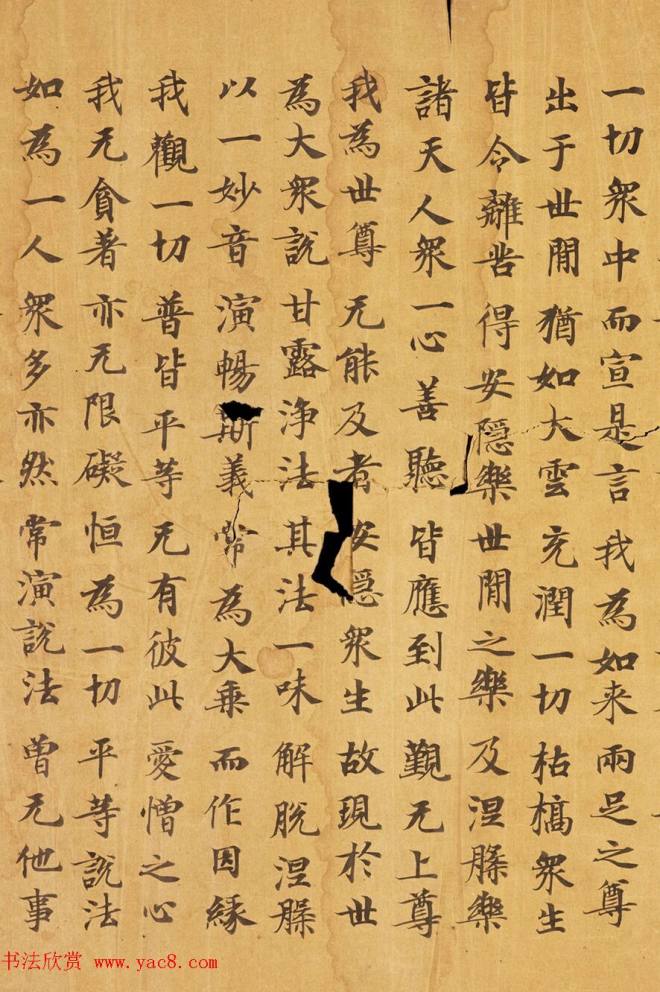 一切衆中而宣是言我為如来兩足之尊
出于世間猶如大雲充潤一切枯槁衆生
皆令離苦得安隱樂世間之樂及涅槃樂
諸天人衆一心善聽皆應到此覲无上尊
我為世尊无能及者安隱衆生故現於世
為大衆說甘露浄法其法一味解脫涅槃
以一妙音演暢斯義常為大乘而作因緣
我觀一切普皆平等无有彼此愛憎之心
我无貪著亦无限礙恒為一切平等說法
如為一人衆多亦然常演說法曾无他事
书法欣赏 www.yac8.com